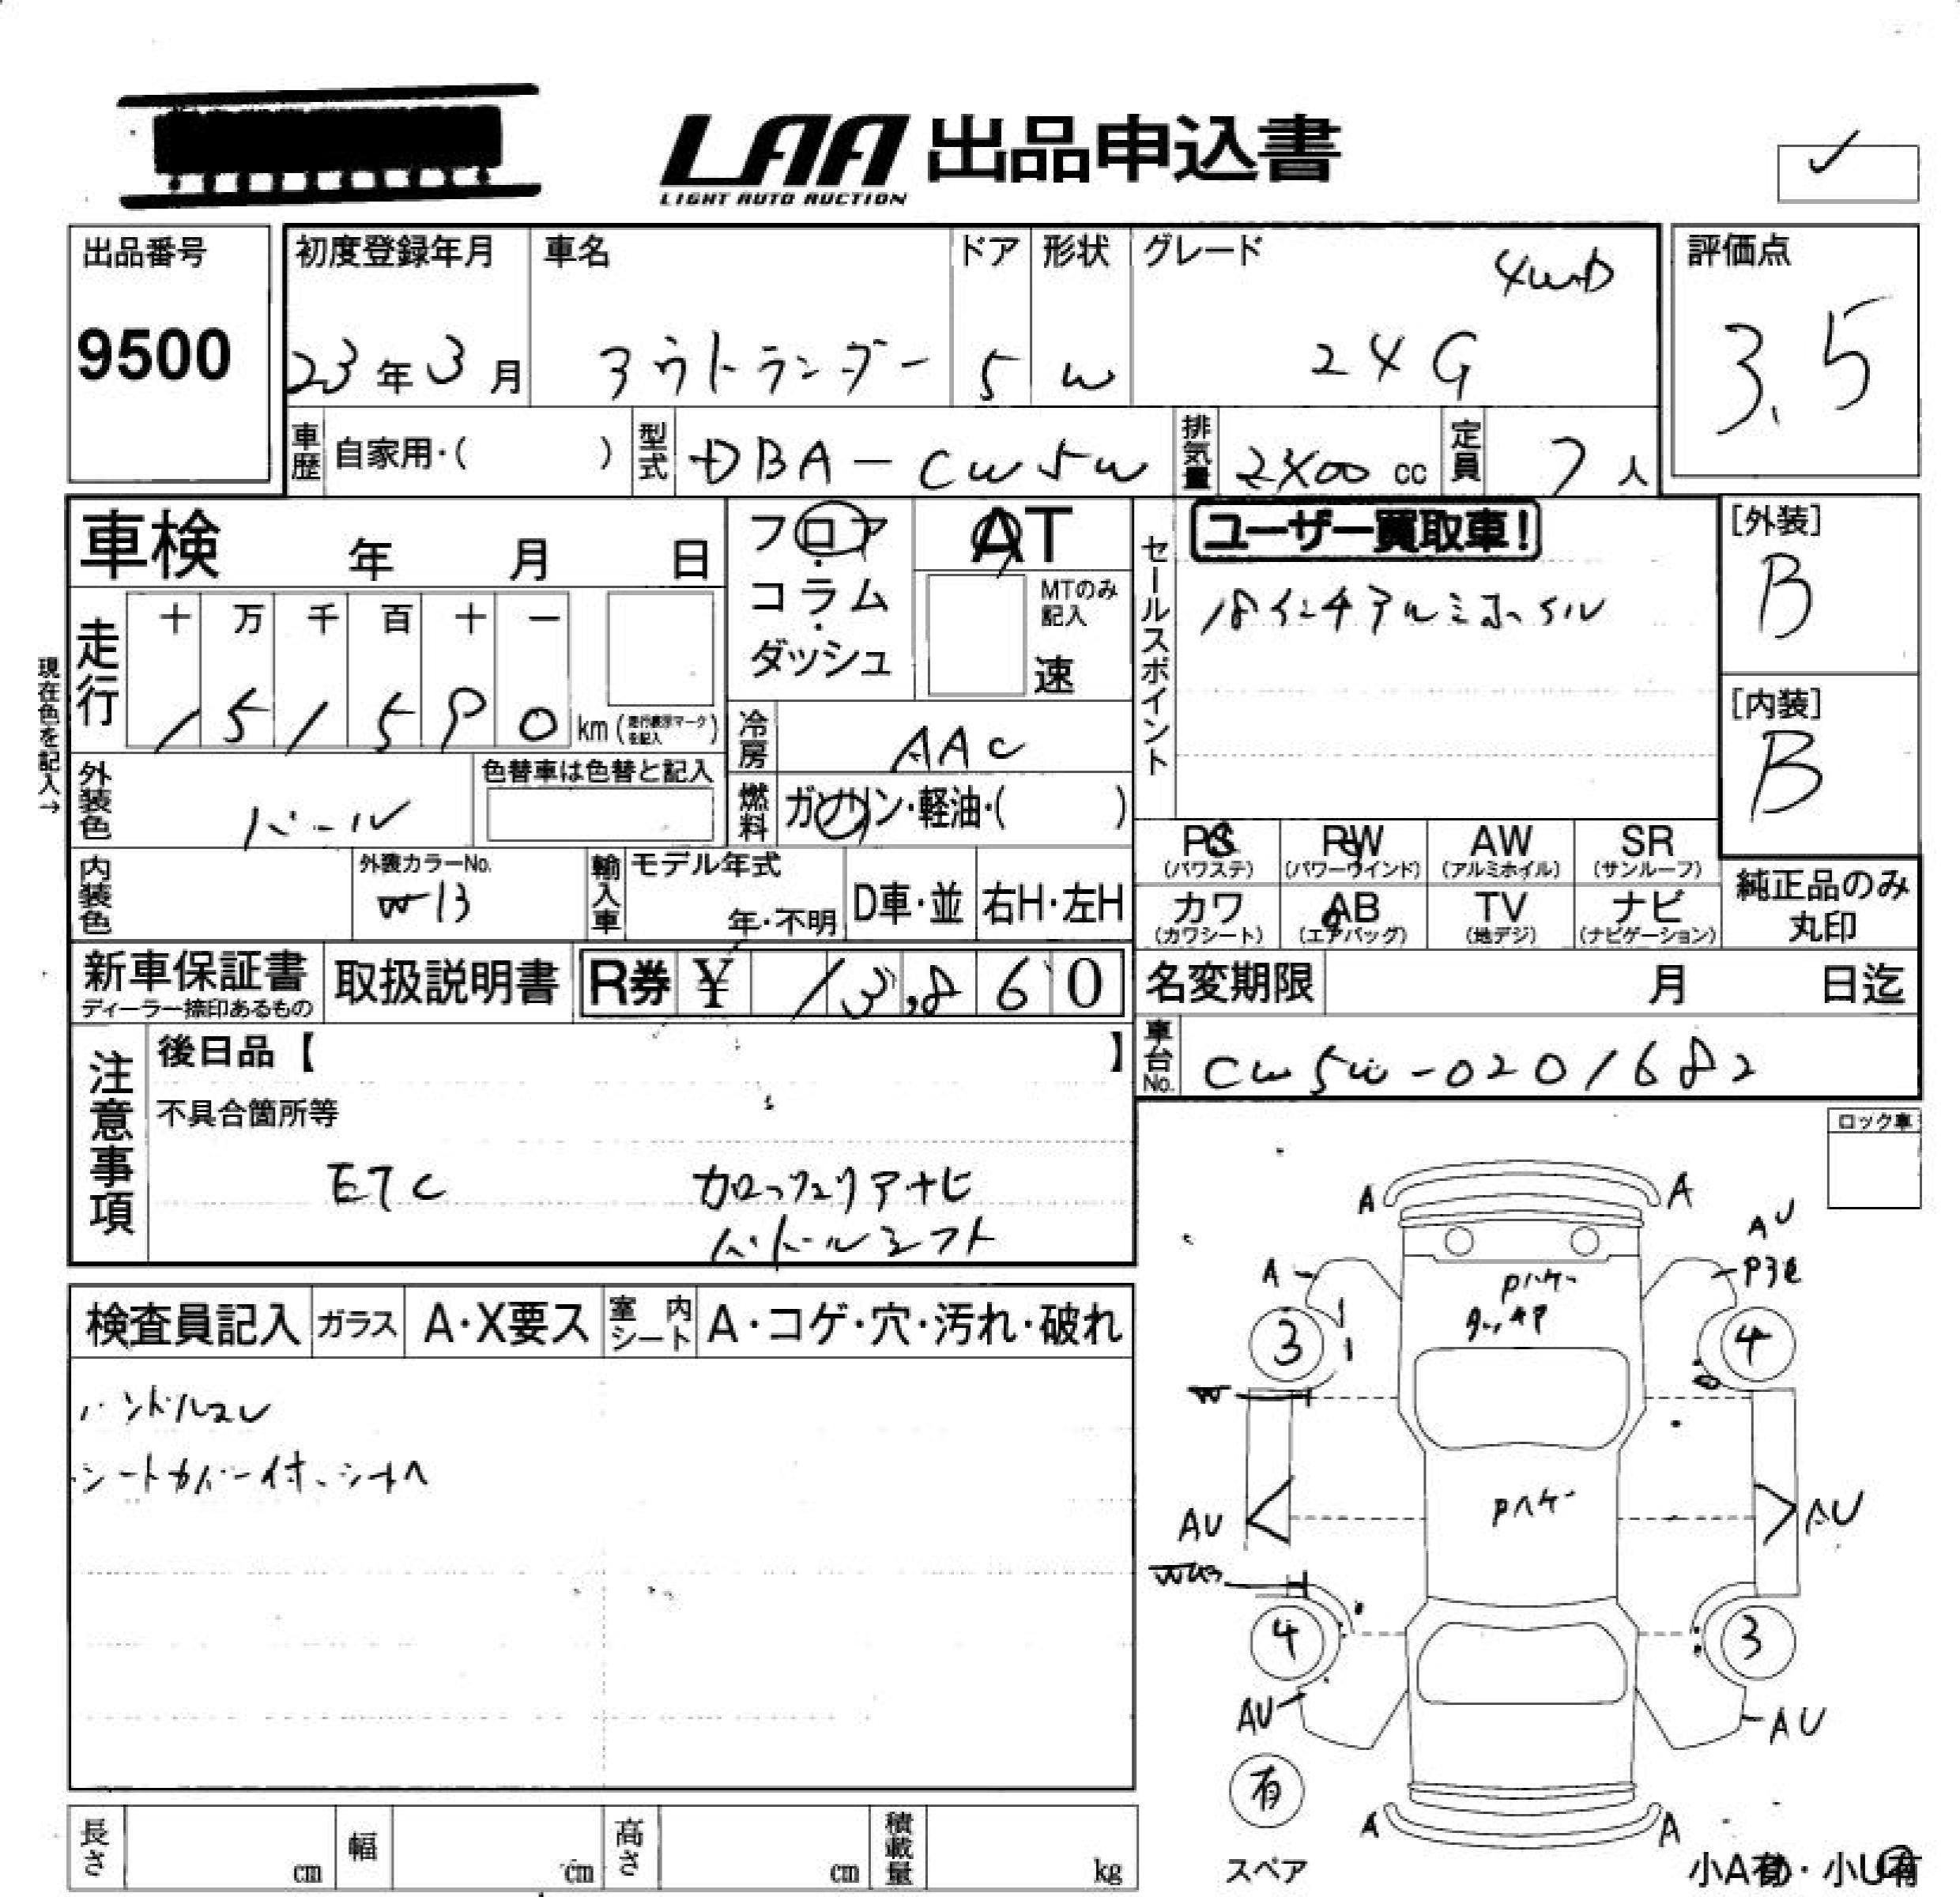 LAA 出品申込書
LIGHT AUTO AUCTION
出品番号
9500
初度登録年月
23年3月
車名
アウトランダー
ドア
5
形状
W
グレード
4WD
24G
評価点
3.5
車歴 自家用・( )
型式 DBA-CW5W
排気量 2400cc
定員 7人
車検 年 月 日
フロア・コラム・ダッシュ
AT
MTのみ記入
速
セールスポイント
ユーザー買取車!
18インチアルミホイル
[外装]
B
[内装]
B
現在色を記入→
走行
十 万 千 百 十 一
1 5 1 5 9 0 km (走行表示マークを記入)
冷房 AAC
外装色 パール
色替車は色替と記入
燃料 ガソリン・軽油・( )
内装色
外装カラーNo.
W13
輸入車
モデル年式
年・不明
D車・並
右H・左H
PS (パワステ)
PW (パワーウインド)
AW (アルミホイル)
SR (サンルーフ)
カワ (カワシート)
AB (エアバッグ)
TV (地デジ)
ナビ (ナビゲーション)
純正品のみ丸印
新車保証書
ディーラー捺印あるもの
取扱説明書
R券 ¥ 13,860
名変期限 月 日迄
車台No. CW5W-0201682
注意事項
後日品【 】
不具合箇所等
ETC カロッツェリアナビ
パドルシフト
ロック車
検査員記入
ガラス A・X要ス
室内シート A・コゲ・穴・汚れ・破れ
ハンドルスレ
シートカバー付、シートヘ
A A
AU
A
Pハケー
3
4
W
Pハケー
AU
AU
4
3
AU
AU
有
スペア
A A
小A有・小U有
長さ cm
幅 cm
高さ cm
積載量 kg